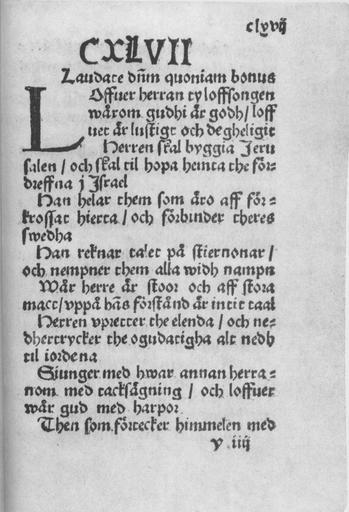 clvij
CXLVII
Laudate dnm quoniam bonus
LOffuer herran ty loffsongen
wårom gudhi är godh / loff
uet är lustigt och degheligit
Herren skal byggia Jeru
salen / och skal til hopa hemta the för-
dreffna j Jsrael
Han helar them som äro aff för-
krossat hierta / och förbinder theres
swedha
Han reknar talet på stiernonar /
och nempner them alla widh nampn
Wår herre är stoor och aff stora
mact / uppå hans förstånd är intit taal
Herren vpretter the elenda / och ne-
dhertrycker the ogudatigha alt nedh
til iordena
Siunger med hwar annan herra-
nom med tacksägning / och loffuet
wår gud med harpor
Then som förtecker himmelen med
y iiij